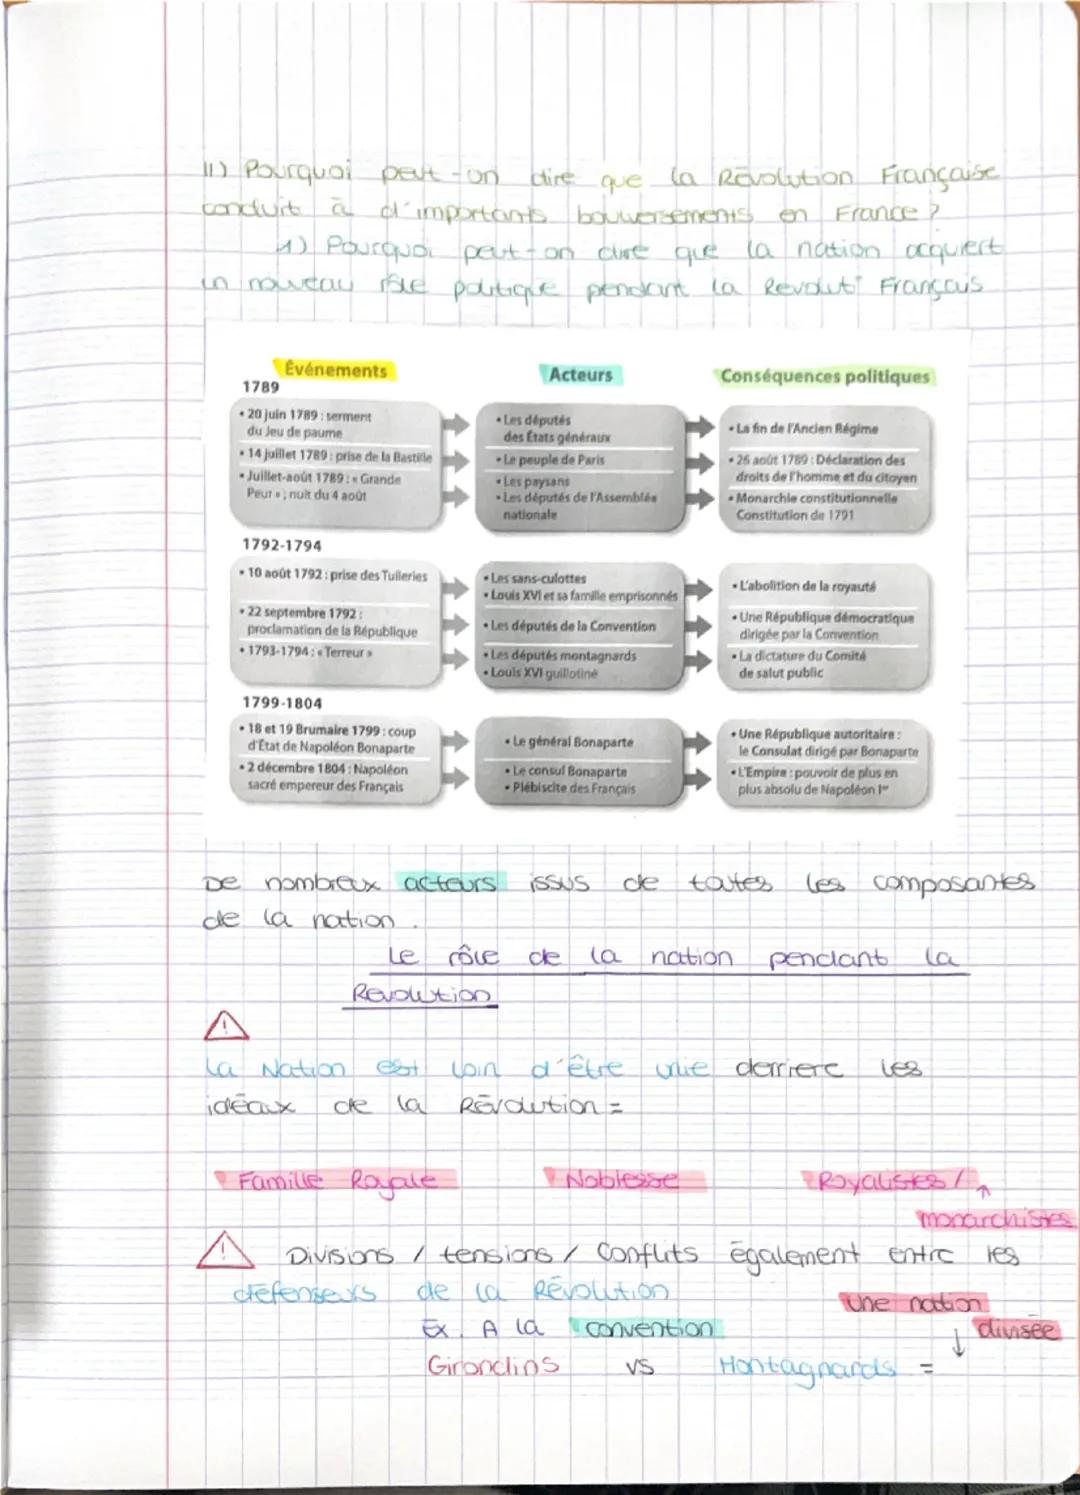 II) Pourquoi peut-on dire que la Révolution Française
conduit à d'importants bouversements en France ?
1) Pourquoi peut-on dire que la nation acquiert
un nouveau rôle politique pendant la Révolut° Français
Événements
Acteurs
Conséquences politiques
1789
• 20 juin 1789 : serment
du Jeu de paume
• 14 juillet 1789 : prise de la Bastille
• Juillet-août 1789 : « Grande
Peur » ; nuit du 4 août
• Les députés
des États généraux
• Le peuple de Paris
• Les paysans
• Les députés de l'Assemblée
nationale
• La fin de l'Ancien Régime
• 26 août 1789 : Déclaration des
droits de l'homme et du citoyen
• Monarchie constitutionnelle
Constitution de 1791
1792-1794
• 10 août 1792 : prise des Tuileries
• 22 septembre 1792 :
proclamation de la République
• 1793-1794 : « Terreur »
• Les sans-culottes
• Louis XVI et sa famille emprisonnés
• Les députés de la Convention
• Les députés montagnards
• Louis XVI guillotiné
• L'abolition de la royauté
• Une République démocratique
dirigée par la Convention
• La dictature du Comité
de salut public
1799-1804
• 18 et 19 Brumaire 1799 : coup
d'État de Napoléon Bonaparte
• 2 décembre 1804 : Napoléon
sacré empereur des Français
• Le général Bonaparte
• Le consul Bonaparte
• Plébiscite des Français
• Une République autoritaire :
le Consulat dirigé par Bonaparte
• L'Empire : pouvoir de plus en
plus absolu de Napoléon Ier
De nombreux acteurs issus de toutes les composantes
de la nation.
Le rôle de la nation pendant la
Révolution
!
La Nation est loin d'être unie derriere les
idéaux de la Révolution =
Famille Royale Noblesse Royalistes /
monarchistes
! Divisions / tensions / Conflits également entre les
défenseurs de la Révolution
Une nation
Ex. A la convention
divisée
Girondins vs Montagnards =